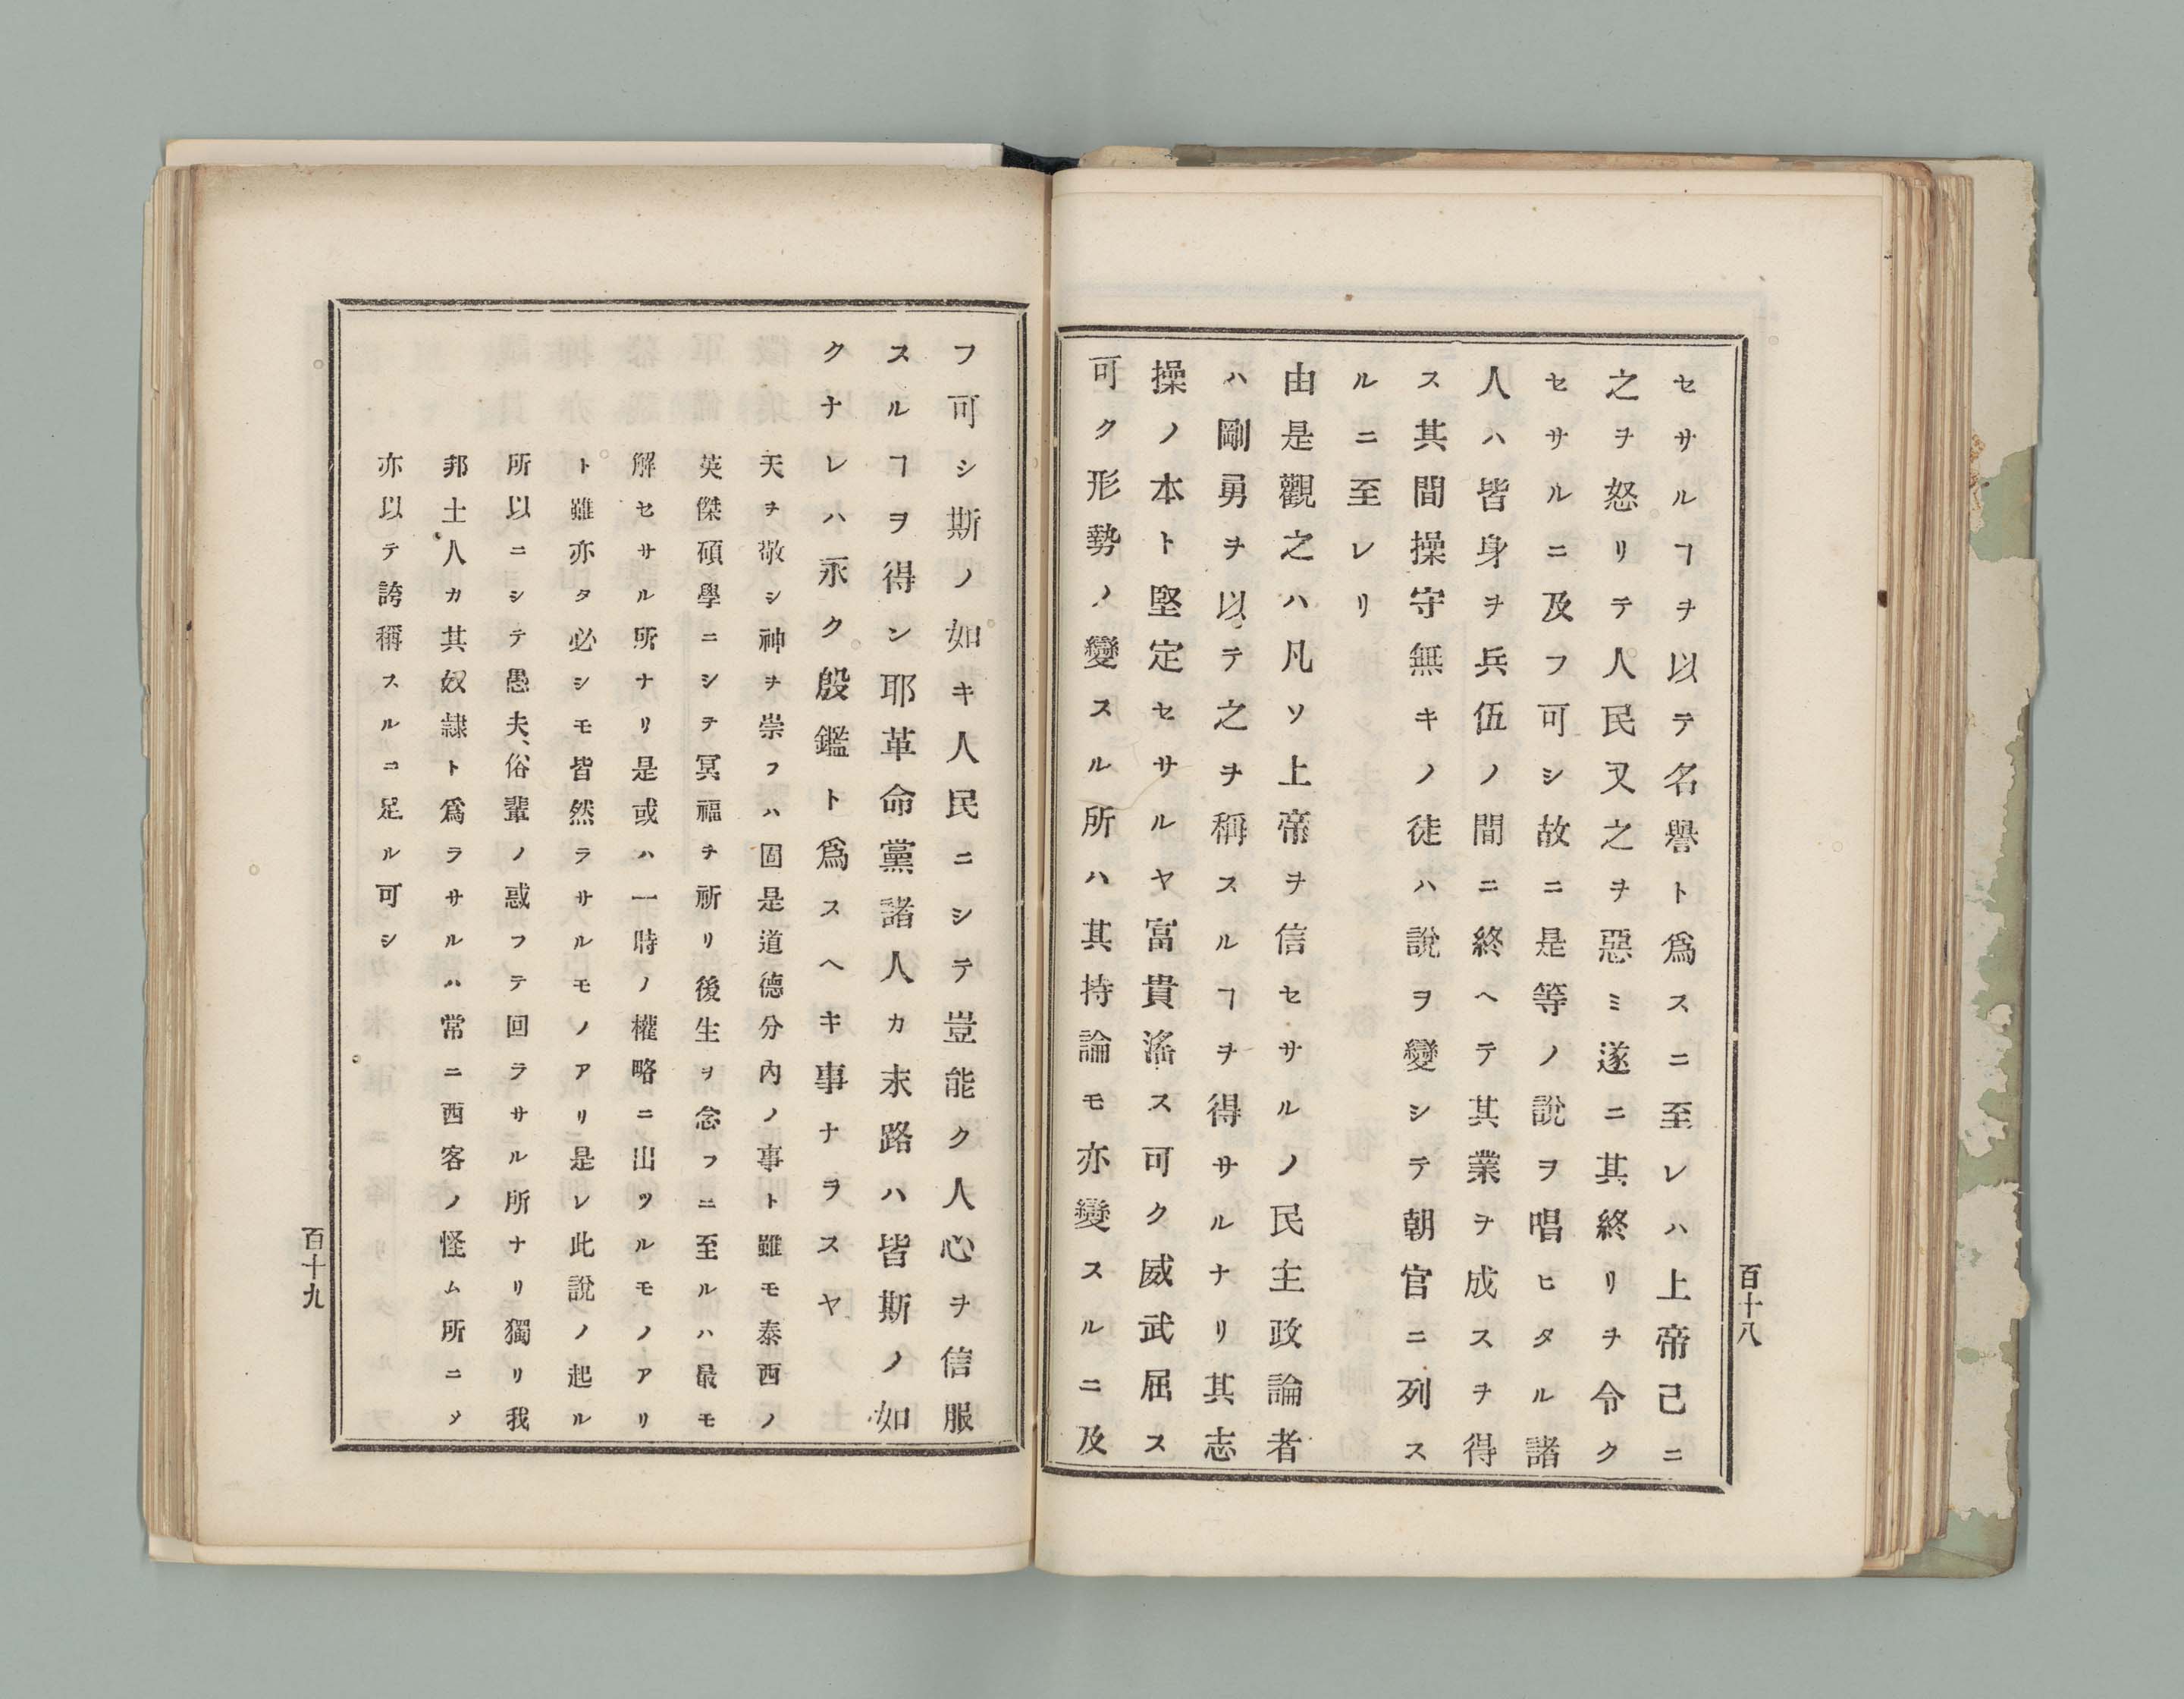 セサルヿヲ以テ名譽ト爲スニ至レハ上帝己ニ
之ヲ怒リテ人民又之ヲ惡ミ遂ニ其終リヲ令ク
セサルニ及フ可シ故ニ是等ノ說ヲ唱ヒタル諸
人ハ皆身ヲ兵伍ノ間ニ終ヘテ其業ヲ成スヲ得
ス其間操守無キノ徒ハ說ヲ變シテ朝官ニ列ス
ルニ至レリ
由是觀之ハ凡ソ上帝ヲ信セサルノ民主政論者
ハ剛勇ヲ以テ之ヲ稱スルヿヲ得サルナリ其志
操ノ本ト堅定セサルヤ富貴滛ス可ク威武屈ス
可ク形勢ノ變スル所ハ其持論モ亦變スルニ及
百十八
フ可シ斯ノ如キ人民ニシテ豈能ク人心ヲ信服
スルヿヲ得ン耶革命黨諸人カ末路ハ皆斯ノ如
クナレハ永ク殷鑑ト爲スヘキ事ナラスヤ
天ヲ敬シ神ヲ崇フハ固是道德分內ノ事ト雖モ泰西ノ
英傑碩學ニシテ冥福ヲ祈リ後生ヲ念フニ至ルハ最モ
解セサル所ナリ是或ハ一時ノ權略ニ出ツルモノアリ
ト雖亦タ必シモ皆然ラサルモノアリ是レ此說ノ起ル
所以ニシテ愚夫、俗輩ノ惑フテ回ラサル所ナリ獨リ我
邦士人カ其奴隷ト爲ラサルハ常ニ西客ノ怪ム所ニメ
亦以テ誇稱スルニ足ル可シ
百十九